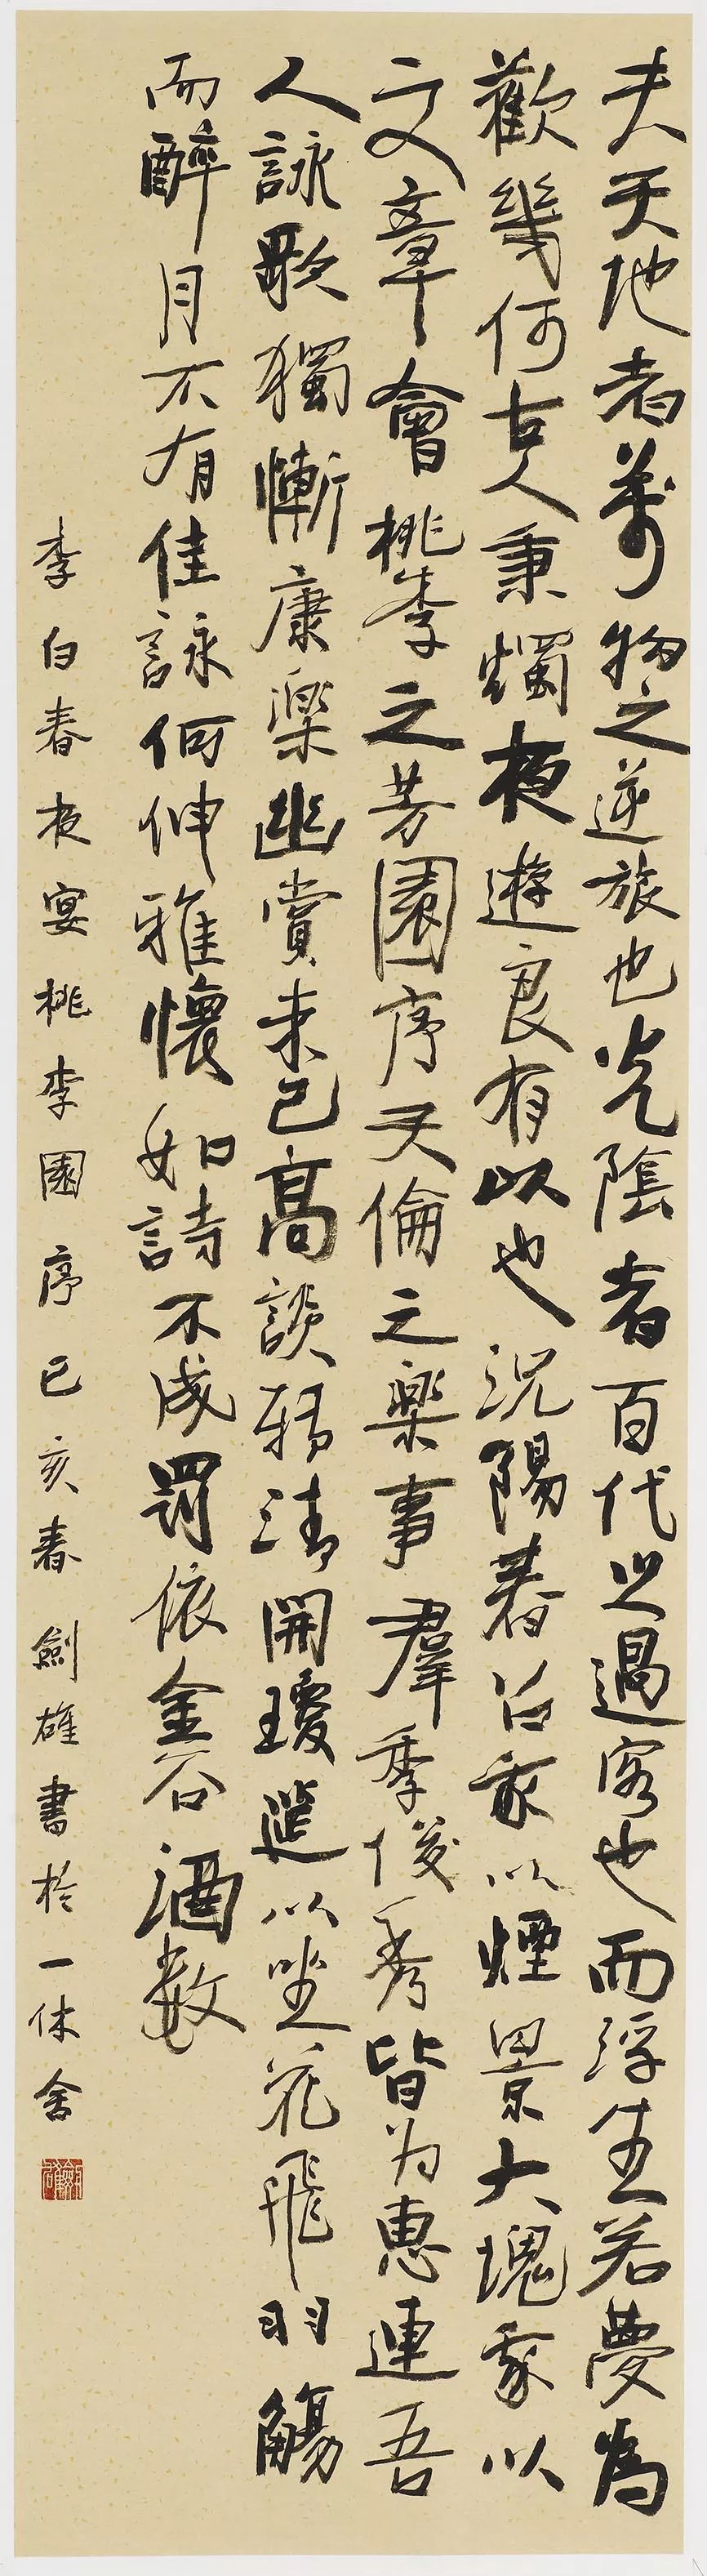 夫天地者萬物之逆旅也光陰者百代之過客也而浮生若夢為
歡幾何古人秉燭夜遊良有以也況陽春召我以煙景大塊我以
文章會桃李之芳園序天倫之樂事羣季俊秀皆为惠連吾
人詠歌獨慚康樂幽賞未已高談轉清開瓊筵以坐花飛羽觴
而醉月不有佳詠何伸雅懷如詩不成罰依金谷酒數
李白春夜宴桃李園序己亥春劍雄書於一休舍